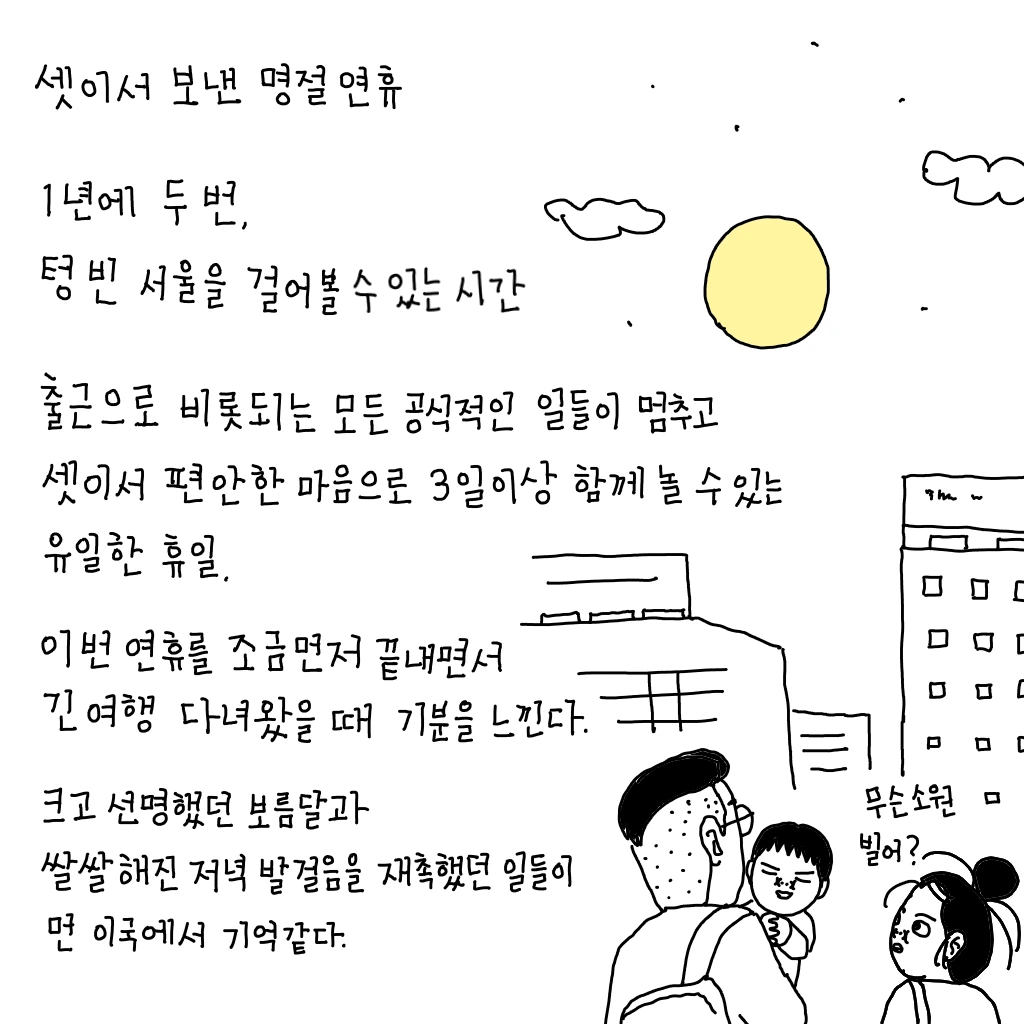 셋이서 보낸 명절 연휴
1년에 두 번,
텅 빈 서울을 걸어볼 수 있는 시간
출근으로 비롯되는 모든 공식적인 일들이 멈추고
셋이서 편안한 마음으로 3일이상 함께 놀 수 있는
유일한 휴일.
이번 연휴를 조금먼저 끝내면서
긴 여행 다녀왔을 때 기분을 느낀다.
크고 선명했던 보름달과
쌀쌀해진 저녁 발걸음을 재촉했던 일들이
먼 이국에서 기억같다.
무슨소원
빌어?